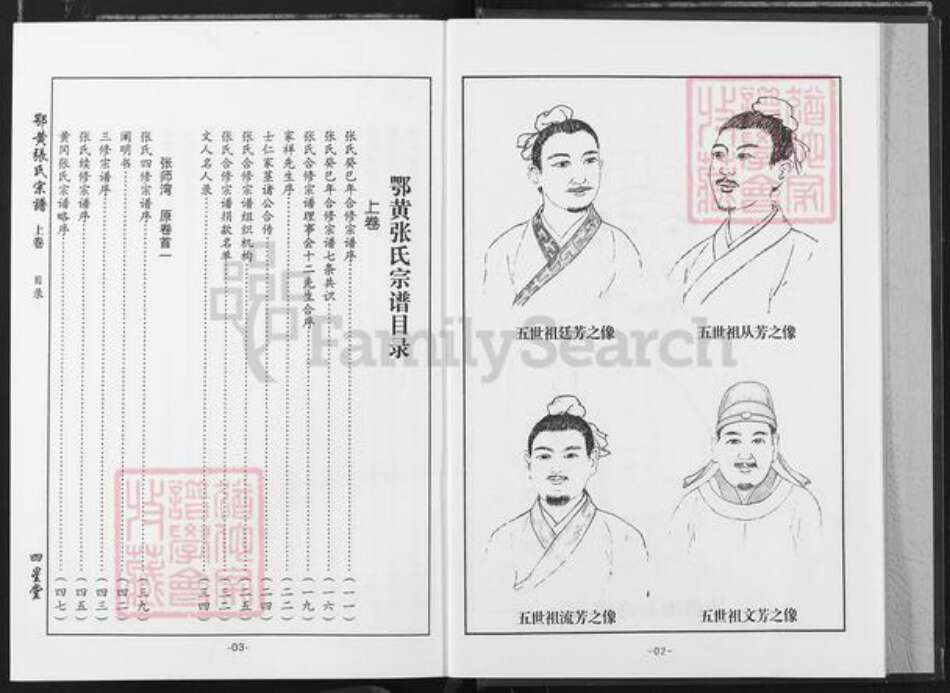 五世祖从芳之像
五世祖廷芳之像
五世祖文芳之像
五世祖流芳之像
-02-
鄂黄张氏宗谱目录
上卷
张氏癸巳年合修宗谱序 (一一)
张氏癸巳年合修宗谱七条共识 (一六)
张氏合修宗谱理事会十二先生合序 (一九)
家祥先生序 (二二)
士仁家基诸公合传 (二四)
张氏合修宗谱组织机构 (二五)
张氏合修宗谱捐款名单 (三二)
文人名人录 (三四)
张师湾 原卷首一
张氏四修宗谱序 (三九)
阐明书 (四二)
三修宗谱序 (四三)
张氏续修宗谱序 (四五)
黄冈张氏宗谱略序 (四七)
鄂黄張氏宗譜 上卷 目录 四星堂
-03-
FamilySearch